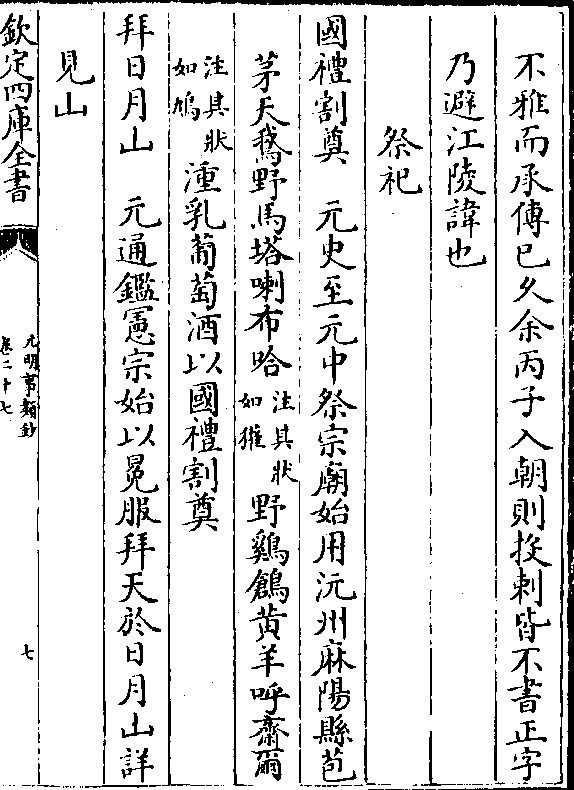 不雅而承傳已久余丙子入朝則投刺皆不書正字
乃避江陵諱也
祭祀
國禮割奠　元史至元中祭宗廟始用沅州麻陽縣苞
茅天鵝野馬塔喇布哈注其狀如獾野鷄鶬黄羊呼齋爾
注其狀如鳩湩乳葡萄酒以國禮割奠
拜日月山　元通鑑憲宗始以冕服拜天於日月山詳
見山
欽定四庫全書
元明事類鈔
卷二十七
七